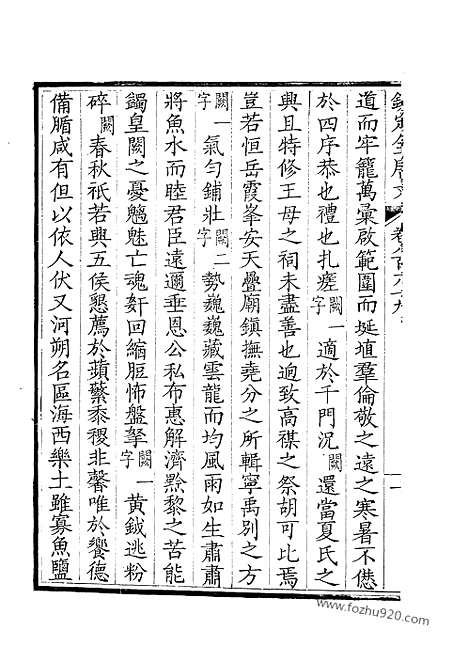 欽定全唐文
道而牢籠萬彙啟範圍而埏埴羣倫敬之遠之寒暑不僁
於四序恭也禮也扎瘥闕一字適於千門況闕還當夏氏之
興且特修王母之祠未盡善也逈致高禖之祭胡可比焉
豈若恒岳霞峯安天疊廟鎮撫堯分之所輯寧禹別之方
闕一字氣勻鋪壯闕二字勢巍巍藏雲龍而均風雨如生肅肅
將魚水而睦君臣遠邇垂恩公私布惠解濟黔黎之苦能
蠲皇闕之憂魑魅亡魂奸回縮脰怖盤拏闕一字黃鉞逃粉
碎闕春秋祇若與五侯懇薦於蘋蘩黍稷非馨唯於饗德
備腯咸有但以依人伏又河朔名區海西樂土雖寡魚鹽
www.fozhu920.com